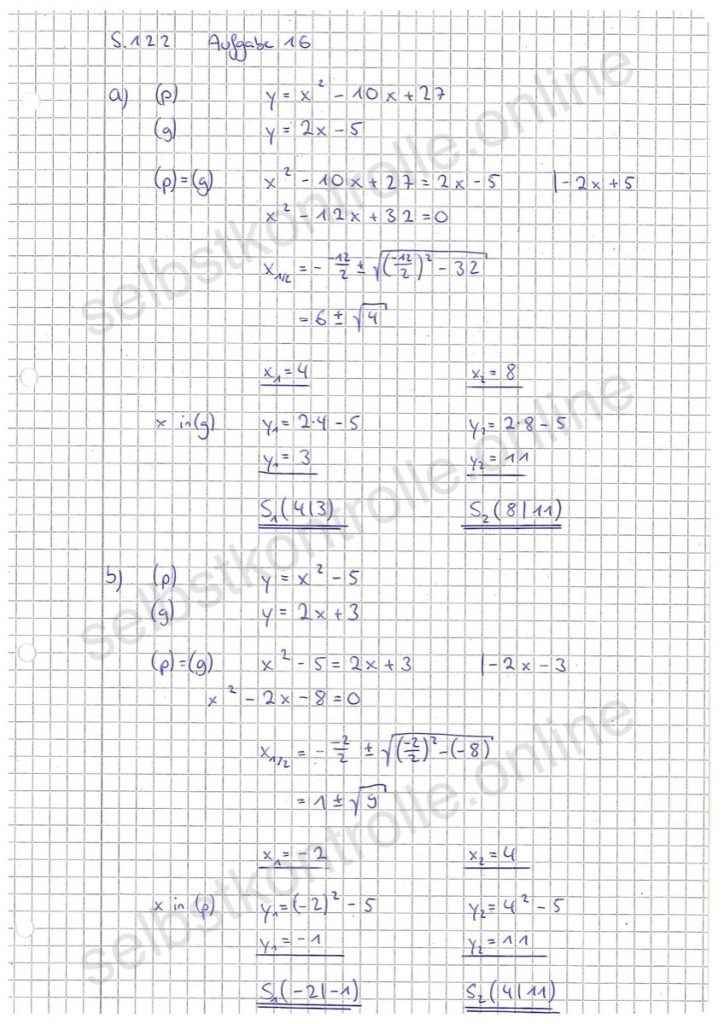 S.122 Aufgabe 16
a) (p) y = x² - 10x + 27
(g) y = 2x - 5
(p) = (g) x² - 10x + 27 = 2x - 5 | - 2x + 5
x² - 12x + 32 = 0
x₁/₂ = - -12/2 ± √((-12/2)² - 32)
= 6 ± √4
x₁ = 4 x₂ = 8
x in (g) y₁ = 2·4 - 5 y₂ = 2·8 - 5
y₁ = 3 y₂ = 11
S₁(4|3) S₂(8|11)
b) (p) y = x² - 5
(g) y = 2x + 3
(p) = (g) x² - 5 = 2x + 3 | - 2x - 3
x² - 2x - 8 = 0
x₁/₂ = - -2/2 ± √((-2/2)² - (-8))
= 1 ± √9
x₁ = -2 x₂ = 4
x in (p) y₁ = (-2)² - 5 y₂ = 4² - 5
y₁ = -1 y₂ = 11
S₁(-2|-1) S₂(4|11)
selbstkontrolle.online
selbstkontrolle.online
selbstkontrolle.online